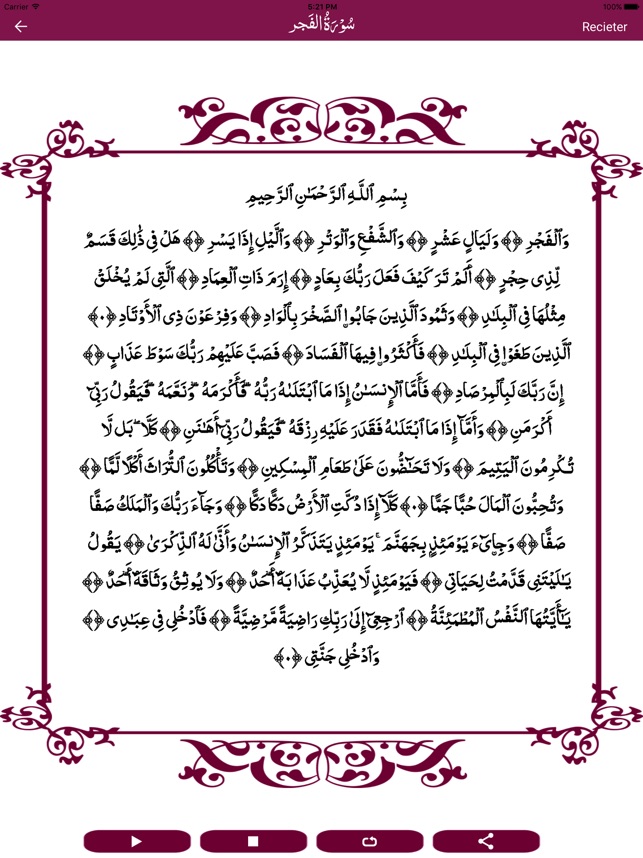 Carrier 5:21 PM 100%
سُوْرَةُ الفَجر Recieter
بِسْمِ اللَّهِ الرَّحْمَٰنِ الرَّحِيمِ
وَالْفَجْرِ ﴿﴾ وَلَيَالٍ عَشْرٍ ﴿﴾ وَالشَّفْعِ وَالْوَتْرِ ﴿﴾ وَالَّيْلِ إِذَا يَسْرِ ﴿﴾ هَلْ فِي ذَٰلِكَ قَسَمٌ
لِّذِي حِجْرٍ ﴿﴾ أَلَمْ تَرَ كَيْفَ فَعَلَ رَبُّكَ بِعَادٍ ﴿﴾ إِرَمَ ذَاتِ الْعِمَادِ ﴿﴾ الَّتِي لَمْ يُخْلَقْ
مِثْلُهَا فِي الْبِلَٰدِ ﴿﴾ وَثَمُودَ الَّذِينَ جَابُوا۟ الصَّخْرَ بِالْوَادِ ﴿﴾ وَفِرْعَوْنَ ذِي الْأَوْتَادِ ﴿٠﴾
الَّذِينَ طَغَوْا۟ فِي الْبِلَٰدِ ﴿﴾ فَأَكْثَرُوا۟ فِيهَا الْفَسَادَ ﴿﴾ فَصَبَّ عَلَيْهِمْ رَبُّكَ سَوْطَ عَذَابٍ ﴿﴾
إِنَّ رَبَّكَ لَبِالْمِرْصَادِ ﴿﴾ فَأَمَّا الْإِنسَٰنُ إِذَا مَا ابْتَلَىٰهُ رَبُّهُۥ فَأَكْرَمَهُۥ وَنَعَّمَهُۥ فَيَقُولُ رَبِّيٓ
أَكْرَمَنِ ﴿﴾ وَأَمَّآ إِذَا مَا ابْتَلَىٰهُ فَقَدَرَ عَلَيْهِ رِزْقَهُۥ فَيَقُولُ رَبِّيٓ أَهَٰنَنِ ﴿﴾ كَلَّا ۖ بَل لَّا
تُكْرِمُونَ الْيَتِيمَ ﴿﴾ وَلَا تَحَٰٓضُّونَ عَلَىٰ طَعَامِ الْمِسْكِينِ ﴿﴾ وَتَأْكُلُونَ التُّرَاثَ أَكْلًا لَّمًّا ﴿﴾
وَتُحِبُّونَ الْمَالَ حُبًّا جَمًّا ﴿٠﴾ كَلَّآ إِذَا دُكَّتِ الْأَرْضُ دَكًّا دَكًّا ﴿﴾ وَجَآءَ رَبُّكَ وَالْمَلَكُ صَفًّا
صَفًّا ﴿﴾ وَجِا۟ىٓءَ يَوْمَئِذٍۭ بِجَهَنَّمَ ۚ يَوْمَئِذٍ يَتَذَكَّرُ الْإِنسَٰنُ وَأَنَّىٰ لَهُ الذِّكْرَىٰ ﴿﴾ يَقُولُ
يَٰلَيْتَنِي قَدَّمْتُ لِحَيَاتِي ﴿﴾ فَيَوْمَئِذٍ لَّا يُعَذِّبُ عَذَابَهُۥٓ أَحَدٌ ﴿﴾ وَلَا يُوثِقُ وَثَاقَهُۥٓ أَحَدٌ ﴿﴾
يَٰٓأَيَّتُهَا النَّفْسُ الْمُطْمَئِنَّةُ ﴿﴾ ارْجِعِيٓ إِلَىٰ رَبِّكِ رَاضِيَةً مَّرْضِيَّةً ﴿﴾ فَادْخُلِي فِي عِبَٰدِي ﴿﴾
وَادْخُلِي جَنَّتِي ﴿٠﴾